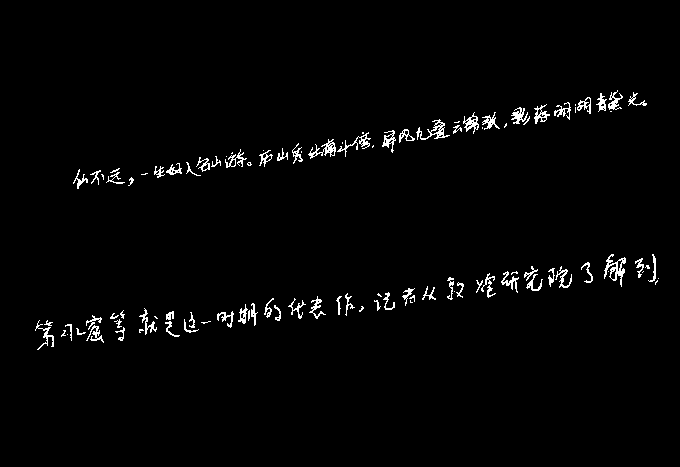 仙不远，一生好入名山游。庐山秀出南斗傍，屏风九叠云锦张，影落明湖青黛光。
第水窟等就是这一时期的代表作。记者从敦煌研究院了解到